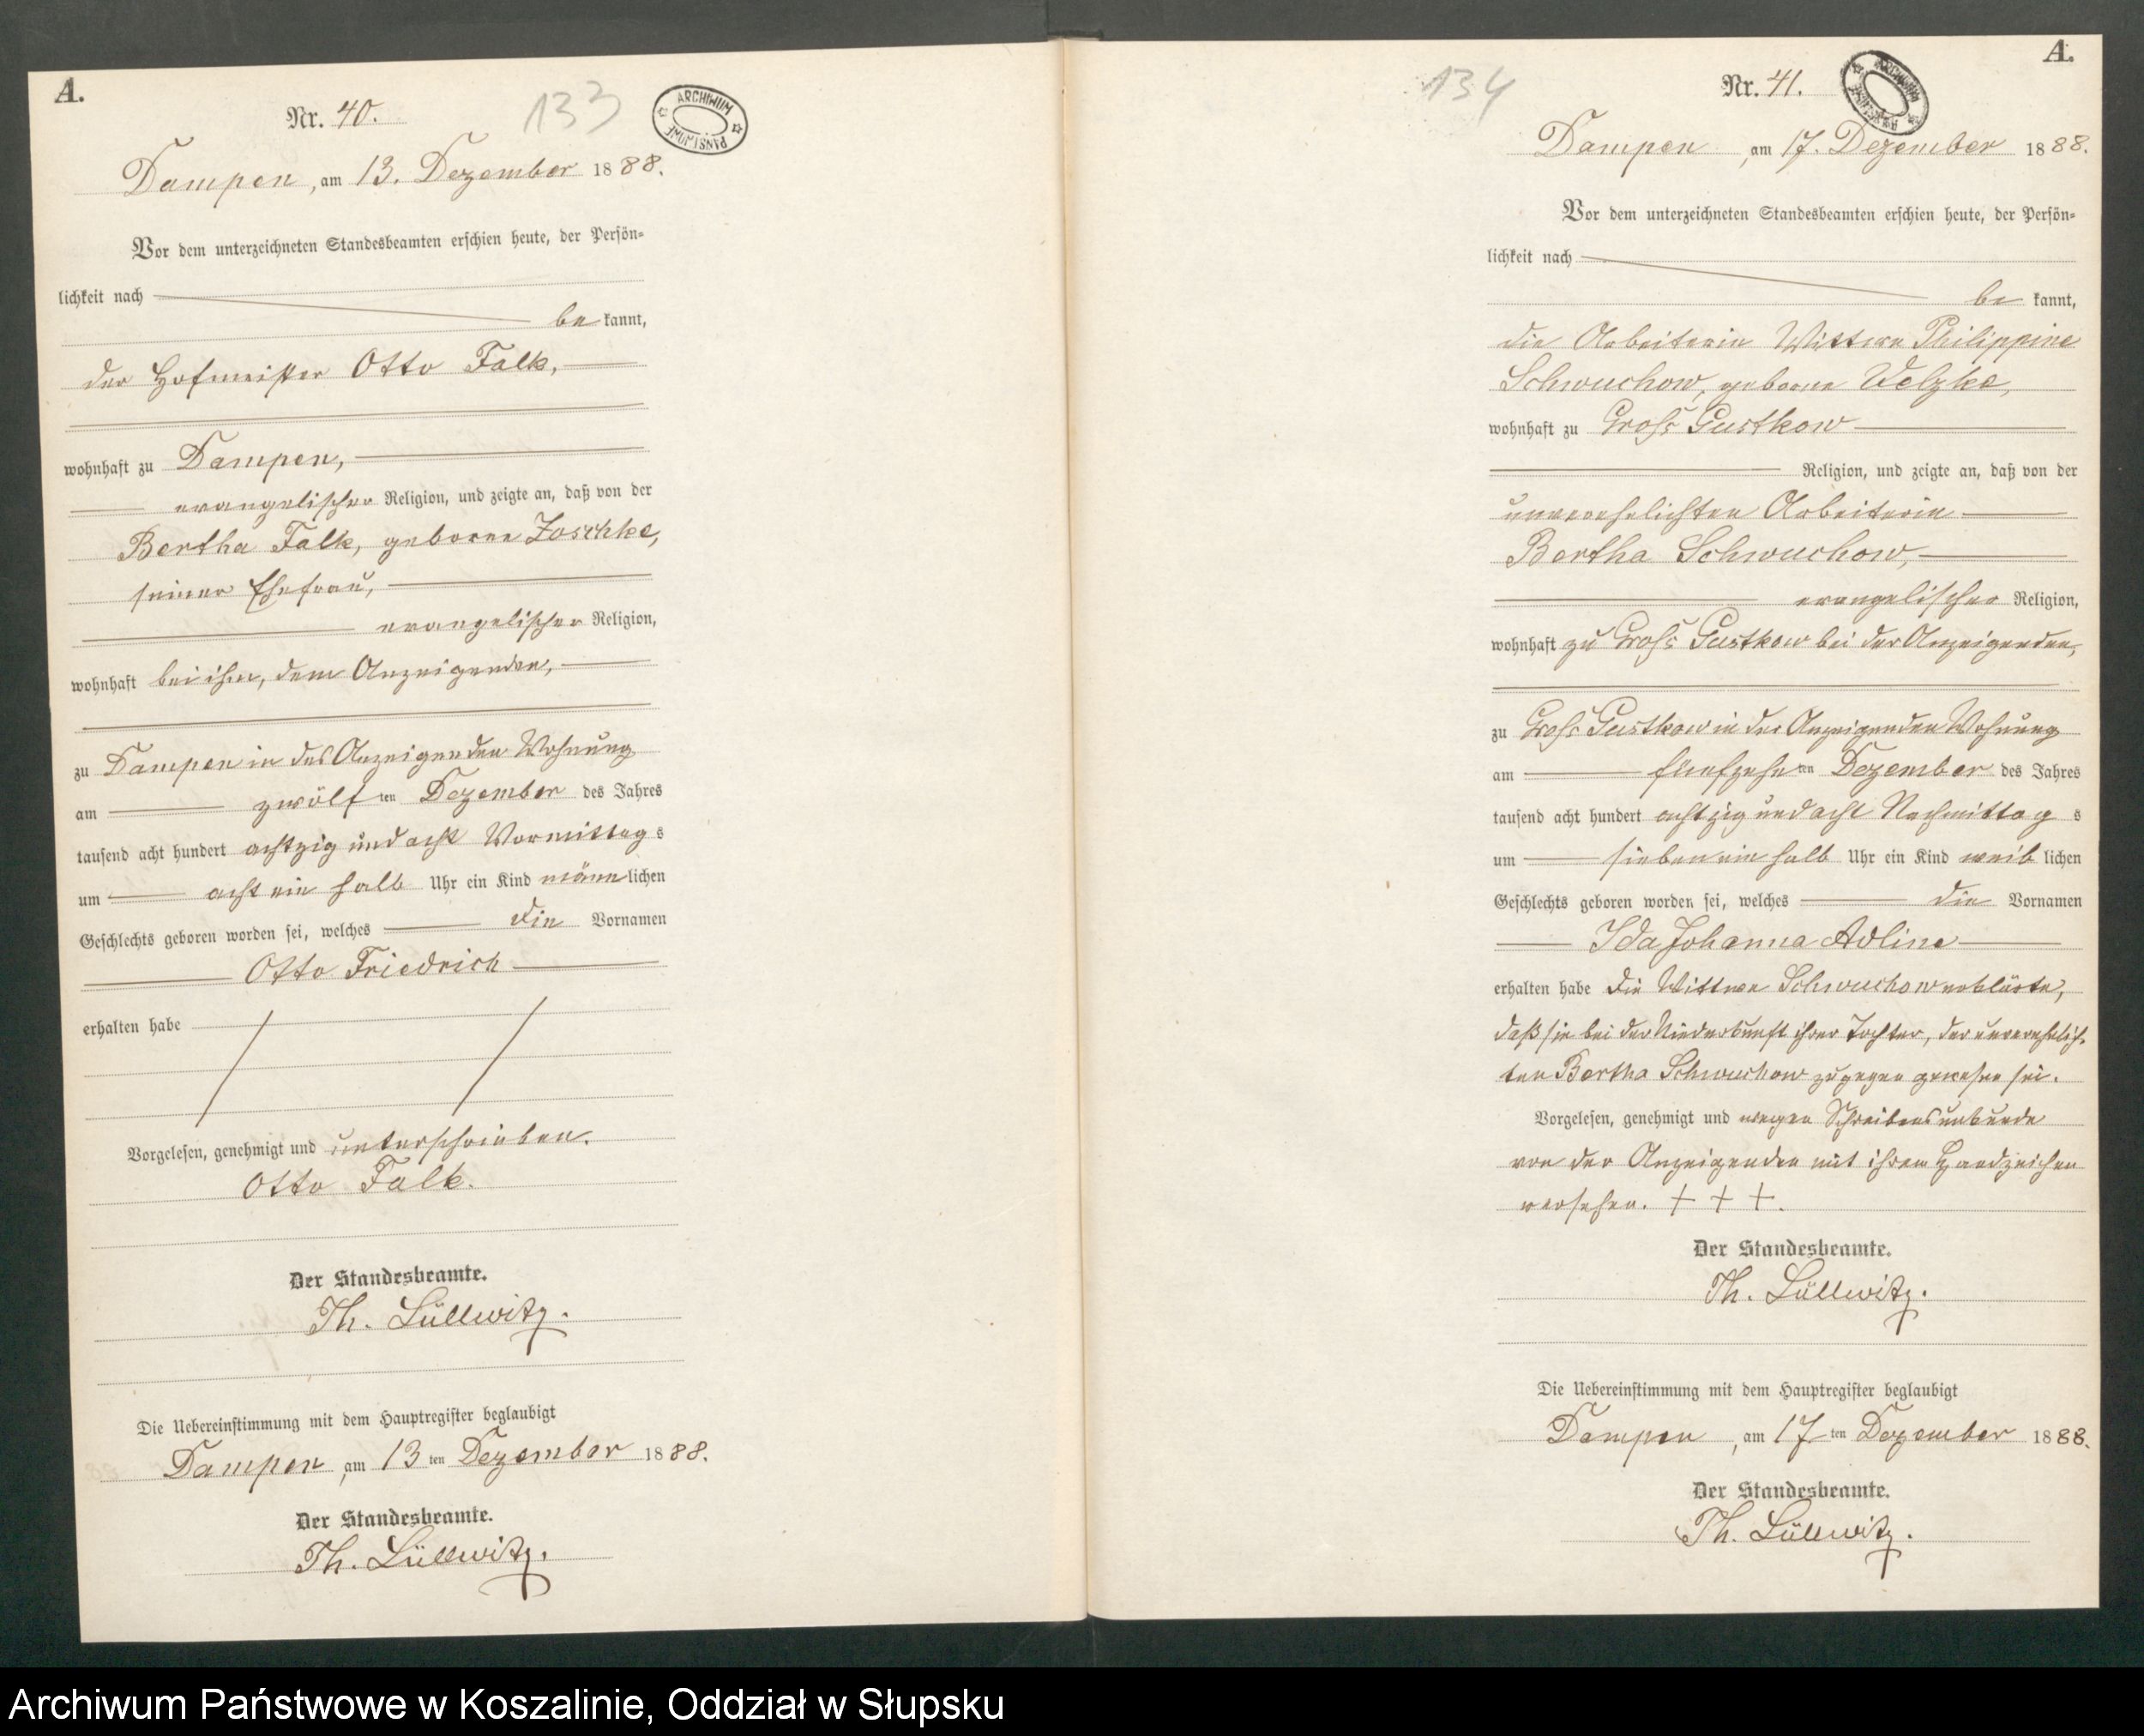 A.
Nr. 40.
133
ARCHIWUM PAŃSTWOWE
Dampen, am 13. Dezember 1888.
Vor dem unterzeichneten Standesbeamten erschien heute, der Persön-
lichkeit nach
be kannt,
der Hofmeister Otto Falk,
wohnhaft zu Dampen,
evangelischer Religion, und zeigte an, daß von der
Bertha Falk, geborene Joschke,
seiner Ehefrau,
evangelischer Religion,
wohnhaft bei ihm, dem Anzeigenden,
zu Dampen in des Anzeigenden Wohnung
am zwölf ten Dezember des Jahres
tausend acht hundert achtzig und acht Vormittag s
um acht ein halb Uhr ein Kind männ lichen
Geschlechts geboren worden sei, welches die Vornamen
Otto Friedrich
erhalten habe
Vorgelesen, genehmigt und unterschrieben.
Otto Falk.
Der Standesbeamte.
Th. Lüllwitz.
Die Uebereinstimmung mit dem Hauptregister beglaubigt
Dampen, am 13 ten Dezember 1888.
Der Standesbeamte.
Th. Lüllwitz.
A.
134
Nr. 41.
ARCHIWUM PAŃSTWOWE
Dampen, am 17. Dezember 1888.
Vor dem unterzeichneten Standesbeamten erschien heute, der Persön-
lichkeit nach
be kannt,
die Arbeiterin Wittwe Philippine
Schwuchow, geborne Velzke,
wohnhaft zu Groß Gustkow
Religion, und zeigte an, daß von der
unverehelichten Arbeiterin
Bertha Schwuchow,
evangelischer Religion,
wohnhaft zu Groß Gustkow bei der Anzeigenden,
zu Groß Gustkow in der Anzeigenden Wohnung
am fünfzehn ten Dezember des Jahres
tausend acht hundert achtzig und acht Nachmittag s
um sieben ein halb Uhr ein Kind weib lichen
Geschlechts geboren worden sei, welches die Vornamen
Ida Johanna Adline
erhalten habe Die Wittwe Schwuchow erklärte,
daß sie bei der Niederkunft ihrer Tochter, der unverehelich-
ten Bertha Schwuchow zugegen gewesen sei.
Vorgelesen, genehmigt und wegen Schreibensunkunde
von der Anzeigenden mit ihrem Handzeichen
versehen. + + +.
Der Standesbeamte.
Th. Lüllwitz.
Die Uebereinstimmung mit dem Hauptregister beglaubigt
Dampen, am 17 ten Dezember 1888.
Der Standesbeamte.
Th. Lüllwitz.
Archiwum Państwowe w Koszalinie, Oddział w Słupsku